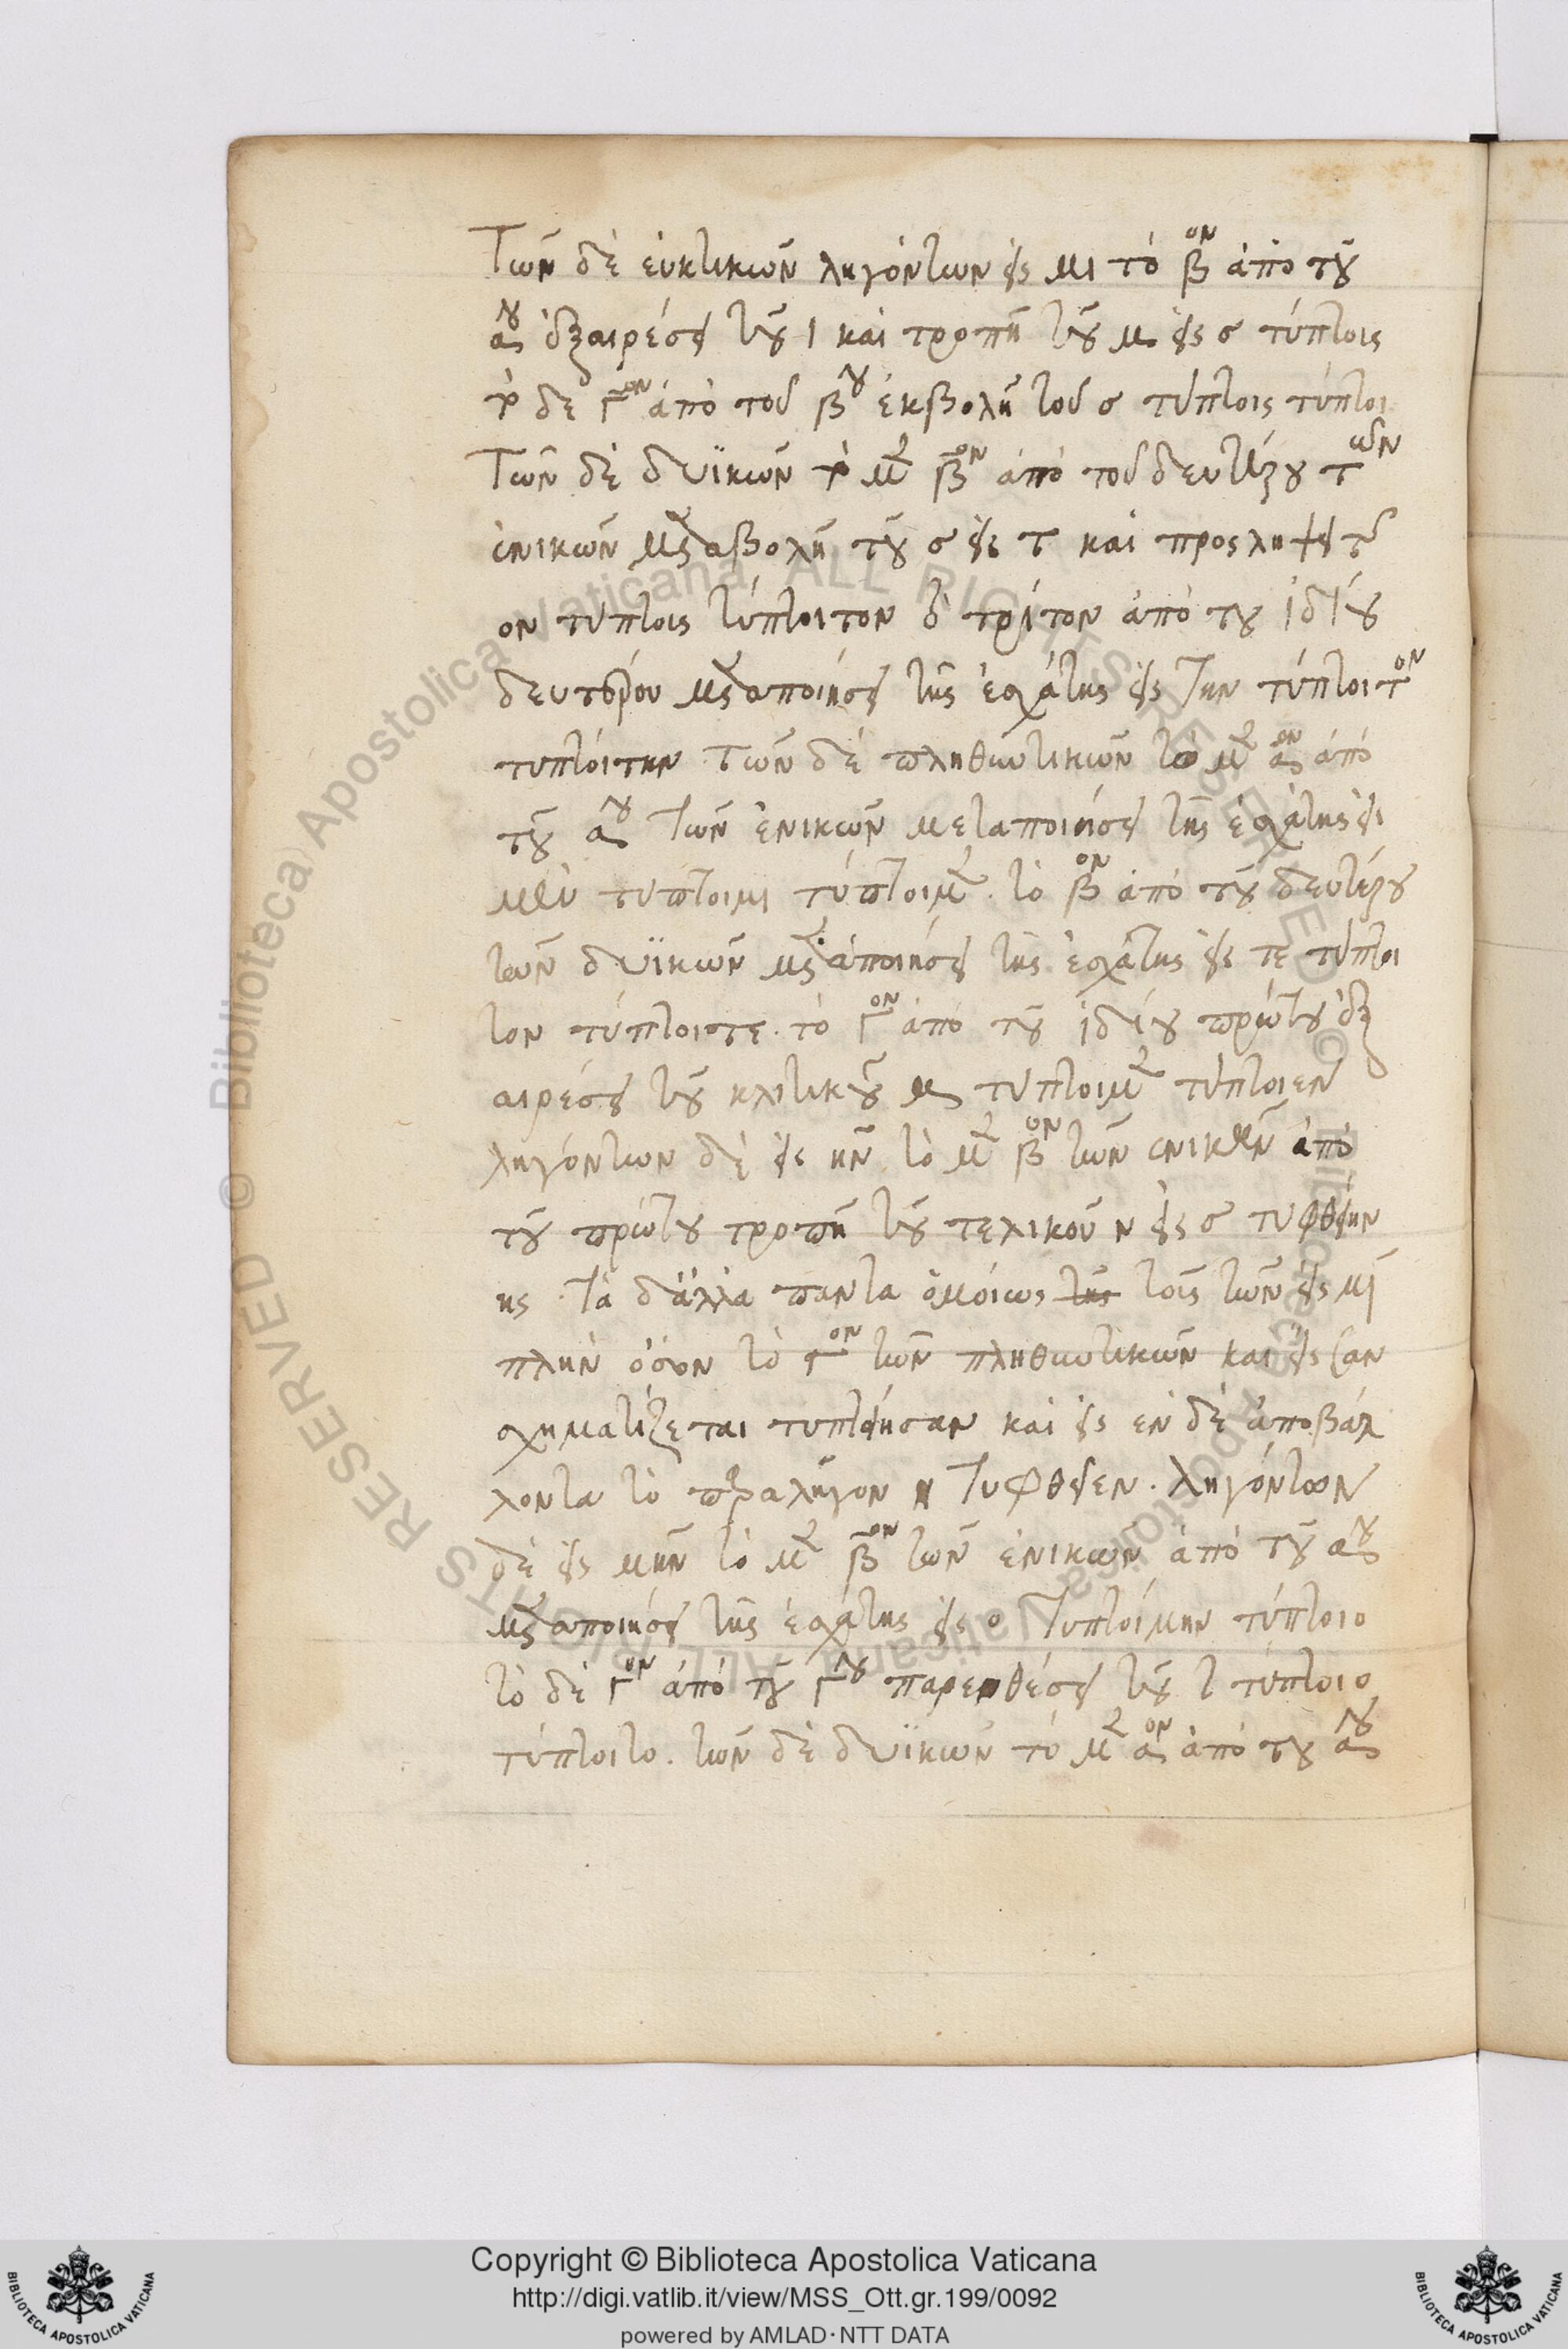 Τῶν δὲ εὐκτικῶν ληγόντων εἰς μι τὸ β̄ον ἀπὸ τοῦ
αου ἐξαιρέσει τοῦ ι καὶ τροπῇ τοῦ μ εἰς σ τύπτοις
τὸ δὲ γον ἀπὸ τοῦ βου ἐκβολῇ τοῦ σ τύπτοις τύπτοι
Τῶν δὲ δυϊκῶν τὸ μὲν βον ἀπὸ τοῦ δευτέρου τῶν
ἑνικῶν μεταβολῇ τοῦ σ εἰς τ καὶ προσλήψει τοῦ
ον τύπτοις τύπτοιτον δ τρίτον ἀπὸ τοῦ ἰδίου
δευτέρου μεταποιήσει τῆς ἐσχάτης εἰς την τύπτοιτον
τυπτοίτην τῶν δὲ πληθυντικῶν τὸ μὲν αον ἀπὸ
τοῦ αου τῶν ἑνικῶν μεταποιήσει τῆς ἐσχάτης εἰ
μεν τύπτοιμι τύπτοιμεν. τὸ βον ἀπὸ τοῦ δευτέρου
τῶν δυϊκῶν μεταποιήσει τῆς ἐσχάτης εἰς τε τύπτοι
τον τύπτοιτε. τὸ γον ἀπὸ τοῦ ἰδίου πρώτου ἐξ
αιρέσει τοῦ κλιτικοῦ μ τύπτοιμεν τύπτοιεν
ληγόντων δὲ εἰς ην τὸ μὲν βον τῶν ἑνικῶν ἀπὸ
τοῦ πρώτου τροπῇ τοῦ τελικοῦ ν εἰς σ τυφθείην
ης. Τὰ δ'ἄλλα πάντα ὁμοίως τῆς τοῖς τῶν εἰς μι
πλὴν ὅσον τὸ γον τῶν πληθυντικῶν καὶ εἰς σαν
σχηματίζεται τυπείησαν καὶ εἰς εν δὲ ἀποβάλ
λοντα τὸ παραλῆγον η τυφθεῖεν. ληγόντων
δὲ εἰς μην τὸ μὲν βον τῶν ἑνικῶν ἀπὸ τοῦ αου
μεταποιήσει τῆς ἐσχάτης εἰς ο Τυπτοίμην τύπτοιο
τὸ δὲ γον ἀπὸ τοῦ γου παρενθέσει τοῦ τ τύπτοιο
τύπτοιτο. τῶν δὲ δυϊκῶν τὸ μὲν αον ἀπὸ τοῦ αου
Copyright © Biblioteca Apostolica Vaticana
http://digi.vatlib.it/view/MSS_Ott.gr.199/0092
powered by AMLAD·NTT DATA